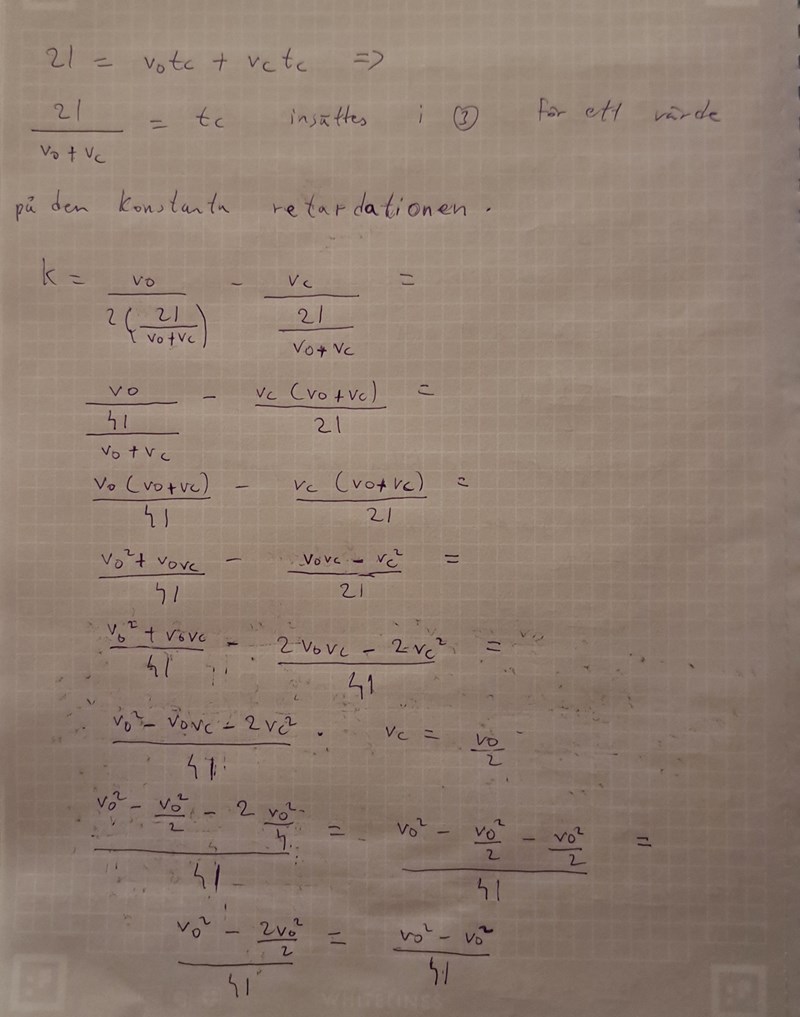 2l = v₀tc + vctc =>
2l/(v₀ + vc) = tc insättes i ① för ett värde
på den konstanta retardationen.
k = v₀/(2(2l/(v₀+vc))) - vc/(2l/(v₀+vc)) =
v₀/(4l/(v₀+vc)) - vc(v₀+vc)/2l =
v₀(v₀+vc)/4l - vc(v₀+vc)/2l =
(v₀²+v₀vc)/4l - (v₀vc - vc²)/2l =
(v₀²+v₀vc)/4l - (2v₀vc - 2vc²)/4l =
(v₀² - v₀vc - 2vc²)/4l . vc = v₀/2
(v₀² - v₀²/2 - 2 v₀²/4)/4l = (v₀² - v₀²/2 - v₀²/2)/4l =
(v₀² - 2v₀²/2)/4l = (v₀² - v₀²)/4l